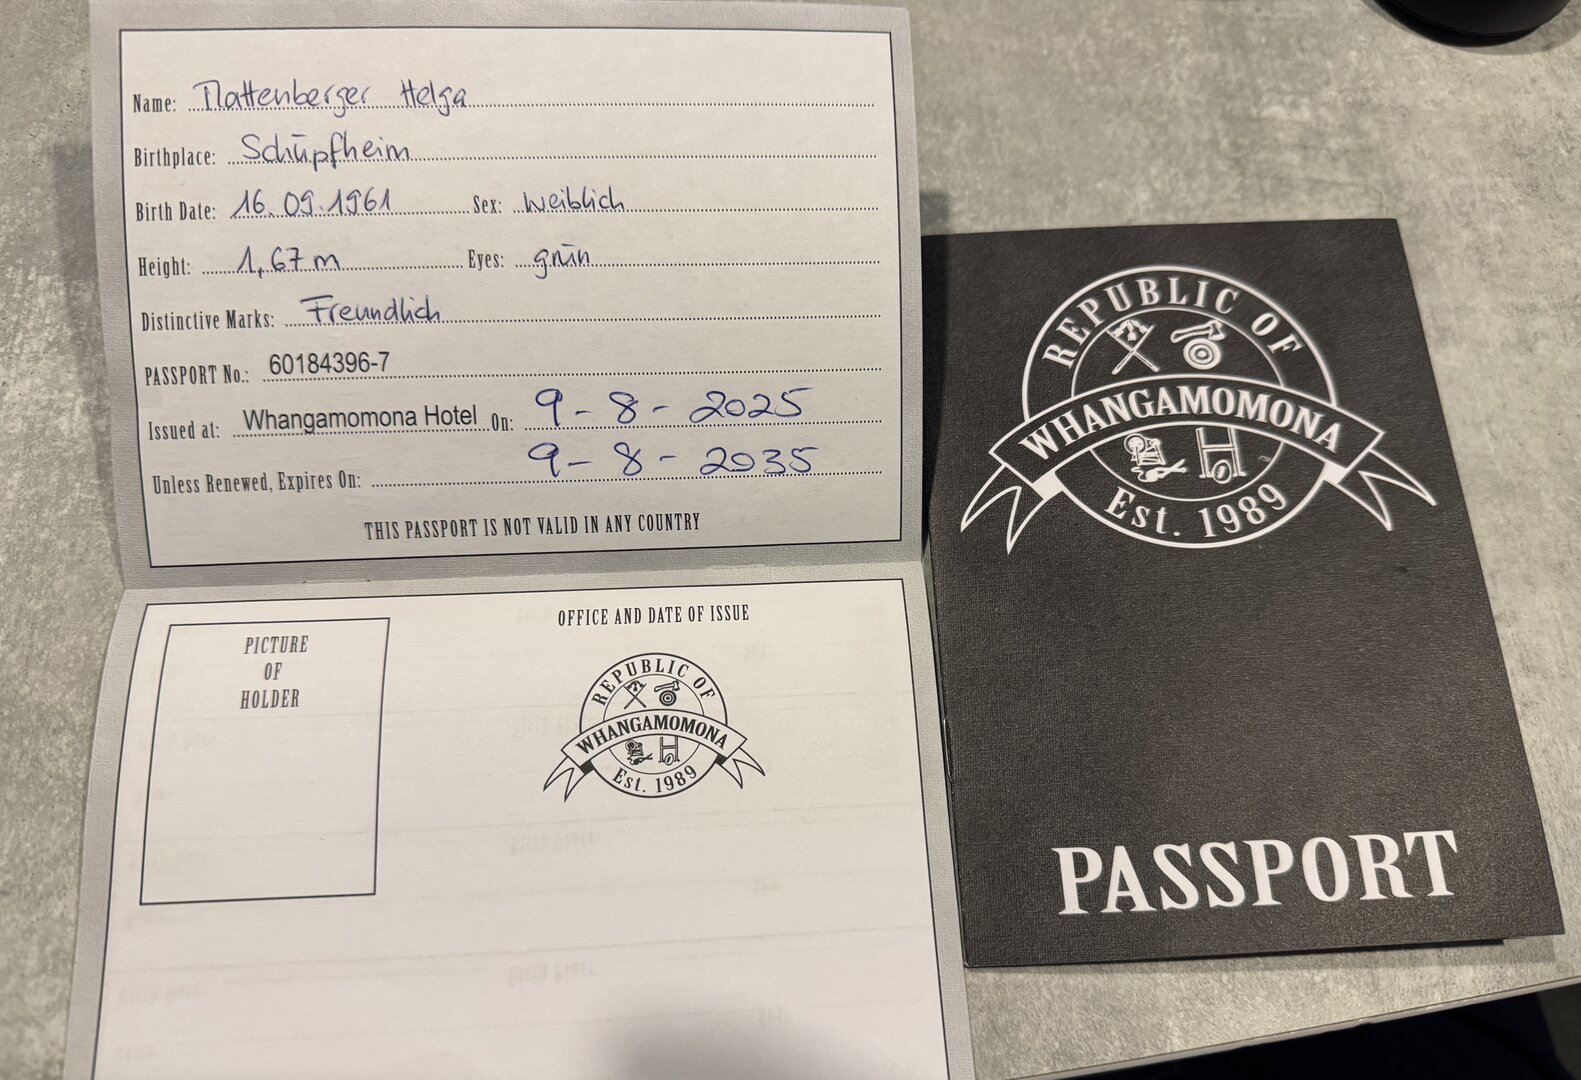 Name: Mattenberger Helga
Birthplace: Schüpfheim
Birth Date: 16.09.1961 Sex: weiblich
Height: 1,67 m Eyes: grün
Distinctive Marks: Freundlich
PASSPORT No.: 60184396-7
Issued at: Whangamomona Hotel On: 9-8-2025
Unless Renewed, Expires On: 9-8-2035
THIS PASSPORT IS NOT VALID IN ANY COUNTRY
PICTURE
OF
HOLDER
OFFICE AND DATE OF ISSUE
REPUBLIC OF
WHANGAMOMONA
Est. 1989
REPUBLIC OF
WHANGAMOMONA
Est. 1989
PASSPORT